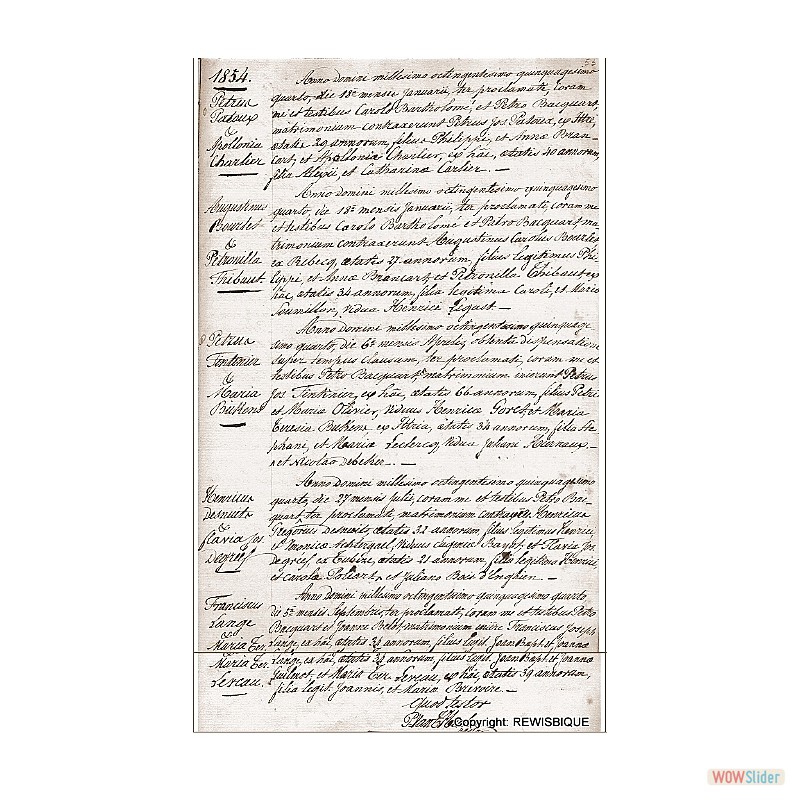 1854.
Petrus
Patoux
&
Apollonia
Charlier
Anno Domini millesimo octingentesimo quinquagesimo
quarto, die 18ª mensis Januarii, ter proclamati, coram
me et testibus Carolo Bartholomé, et Petro Bacquart,
matrimonium contraxerunt Petrus Jos Patoux, ex Ittre,
ætatis 29 annorum, filius Philippi, et Annæ Bran
cart, et Apollonia Charlier, ex hâc, ætatis 40 annorum,
filia Alexii, et Catharina Carlier. —
Augustinus
Bourlet
&
Petronilla
Thibaut
Anno Domini millesimo octingentesimo quinquagesimo
quarto, die 18ª mensis Januarii, ter proclamati, coram me
et testibus Carolo Bartholomé et Petro Bacquart, ma
trimonium contraxerunt Augustinus Carolus Bourlet
ex Rebecq, ætatis 27 annorum, filius legitimus Phi
lippi, et Annæ Brancart, et Petronilla Thibaut ex
hâc, ætatis 34 annorum, filia legitima Caroli, et Maria
vidua Henrici
Petrus
Tintinier
&
Maria
Anno Domini millesimo octingentesimo quinquage
simo quarto, die 6ª mensis Aprilis, obtenta dispensatione
super tempus clausum, ter proclamati, coram me et
testibus Petro Bacquart, matrimonium inierunt Petrus
Jos Tintinier, ex hâc, ætatis 66 annorum, filius Petri
et Maria Olivier, viduus Henrica et Maria
Teresia ætatis 34 annorum, filia Ste
phani, et Maria Leclercq, vidua Juliani
et Nicolao —
Henricus
&
Flavia Jos
Anno Domini millesimo octingentesimo quinquagesimo
quarto, die 27 mensis Julii, coram me et testibus Petro Bac
quart, ter proclamati, matrimonium Henricus
Gregorius ætatis 32 annorum, filius legitimus Henrici,
et Monica viduus Eugenia et Flavia Jos
ætatis 21 annorum, filia legitima
et Carola et Juliano Bois d'Enghien. —
Franciscus
Lange
&
Maria Ter.
Maria Ter.
Lereau.
Anno Domini millesimo octingentesimo quinquagesimo quarto,
die 5ª mensis Septembris, ter proclamati, coram me et testibus Petro
Bacquart et Joanne matrimonium Franciscus Joseph
Lange, ex hâc, ætatis 34 annorum, filius legit. Joan Bapt. et Joanna
Lange, ex hâc, ætatis 34 annorum, filius legit. Joan Bapt. et Joanna
et Maria Ter. Lereau, ex hâc, ætatis 39 annorum,
filia legit. Joannis, et Maria —
Quod testor
Copyright: REWISBIQUE
WOWSlider